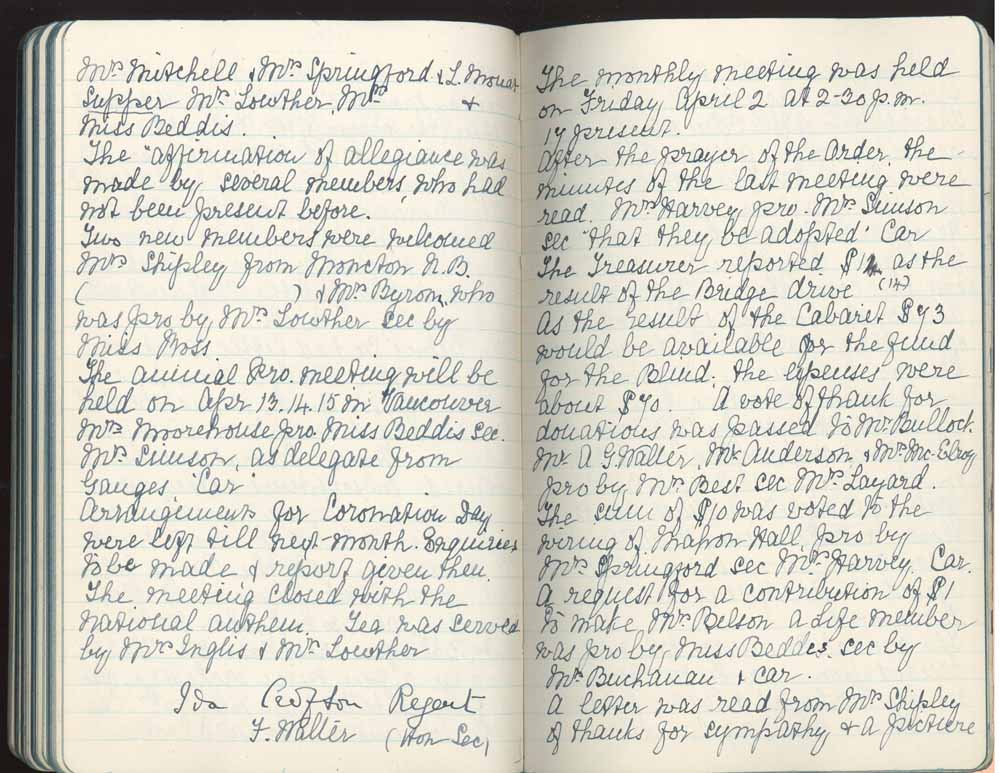 Mrs Mitchell & Mrs Springford & L. Mouat
Supper Mrs Lowther, Mrs &
Miss Beddis.
The "affirmation of allegiance was
made by several members who had
not been present before.
Two new members were welcomed
Mrs Shipley from Moncton N.B.
( ) & Mrs Byrom, who
was pro by Mrs Lowther sec by
Miss Ross
The annual Pro. meeting will be
held on Apr 13. 14. 15 in Vancouver
Mrs Moorehouse pro. Miss Beddis sec.
Mrs Simson, as delegate from
Ganges Car
Arrangements for Coronation Day
were left till next month. Enquiries
to be made & report given then.
The meeting closed with the
National anthem. Tea was served
by Mrs Inglis & Mrs Lowther
Ida Crofton Regent
F. Walter (Hon Sec)
The monthly meeting was held
on Friday April 2 at 2-30 p.m.
17 present.
After the prayer of the Order, the
minutes of the last meeting were
read. Mrs Harvey pro. Mrs Simson
sec "that they be adopted' Car
The Treasurer reported $ as the
result of the Bridge drive (14)
As the result of the Cabaret $73
would be available for the fund
for the Blind: the expenses were
about $70. A vote of thank for
donations was passed to Mr Bullock.
Mr A G. Walter, Mr Anderson & Mrs Mc-Elroy
pro by Mrs Best sec Mrs Layard.
The sum of $10 was voted to the
wiring of Mahon Hall pro by
Mrs Springford sec Mrs Harvey. Car.
A request for a contribution of $1
to make Mrs Belson a Life member
was pro by Miss Beddis. sec by
Mrs Buchanan & car.
A letter was read from Mrs Shipley
of thanks for sympathy & a picture